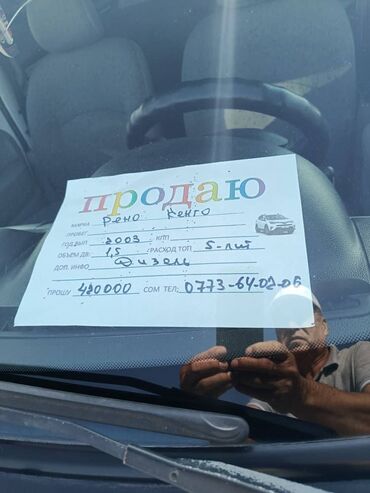 продаю
МАРКА Рено Кенго
ПРОБЕГ
ГОД ВЫП 2003 КПП
ОБЪЕМ ДВ. 1,5 РАСХОД ТОП 5-лит
ДОП. ИНФО Дизель
ПРОШУ 420000 СОМ ТЕЛ: 0773-64-02-06